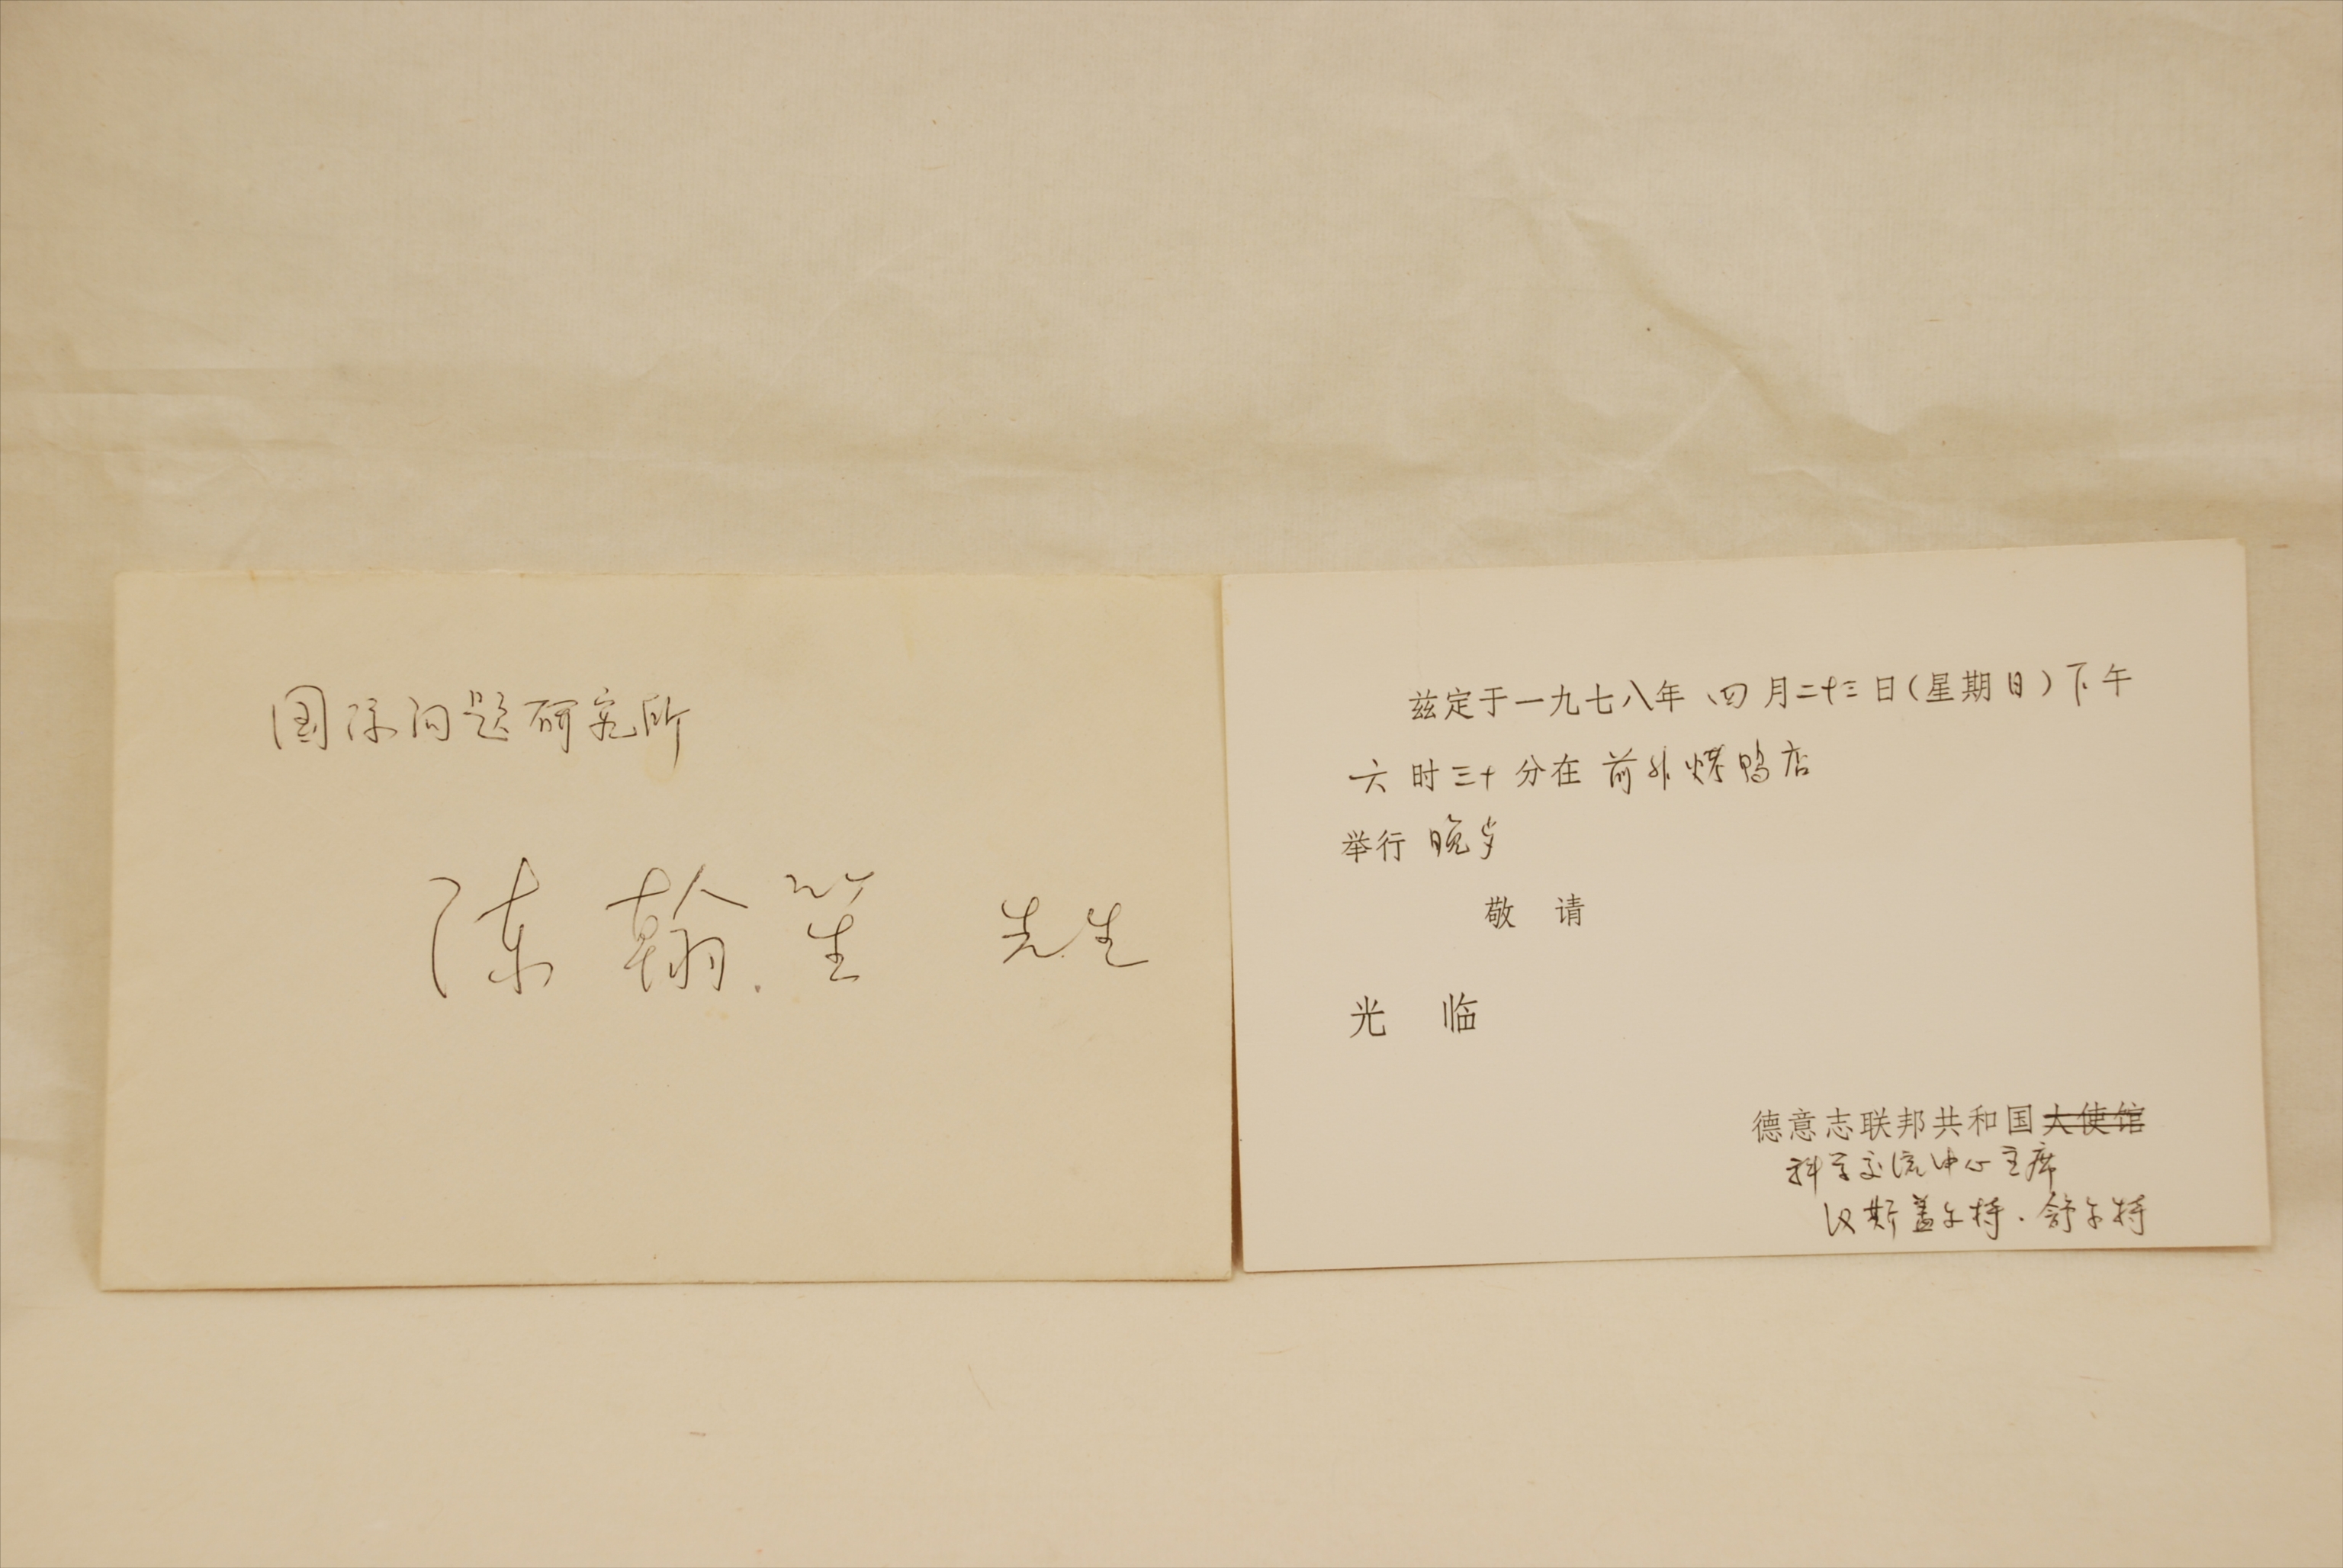 国际问题研究所
陈翰笙 先生
兹定于一九七八年 四 月二十三日(星期日)下午
六 时三十 分在 前外烤鸭店
举行 晚宴
敬 请
光 临
德意志联邦共和国大使馆
科学交流中心主席
汉斯盖尔特·舒尔特